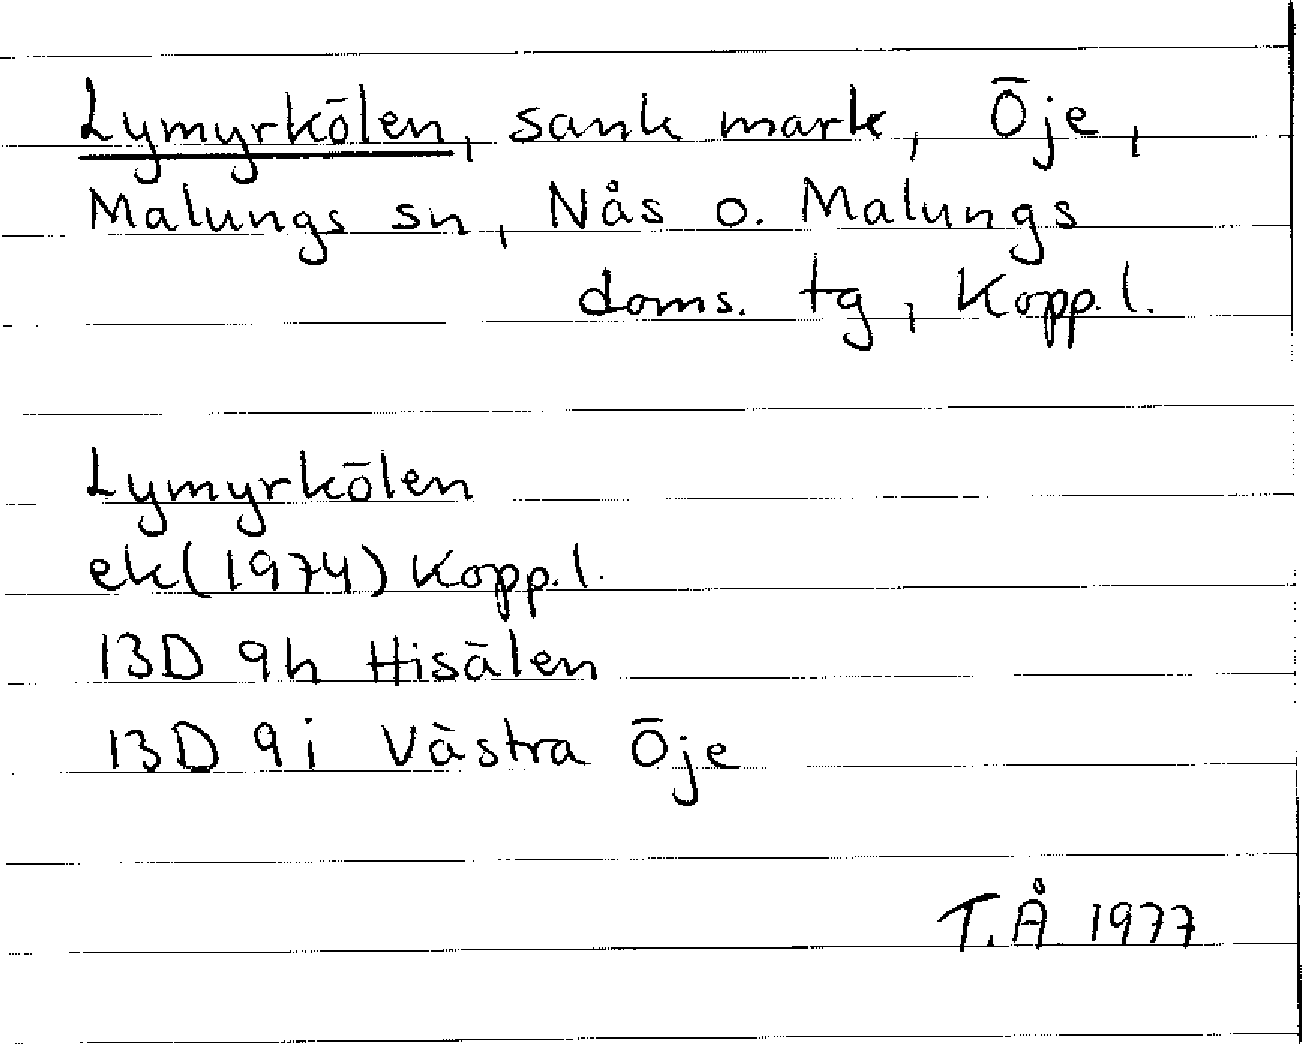 Lymyrkölen, sank mark, Öje,
Malungs sn, Nås o. Malungs
doms. tg, Kopp. l.
Lymyrkölen
ek (1974) Kopp. l.
13D 9h Hisälen
13D 9i Västra Öje
T.Å 1977